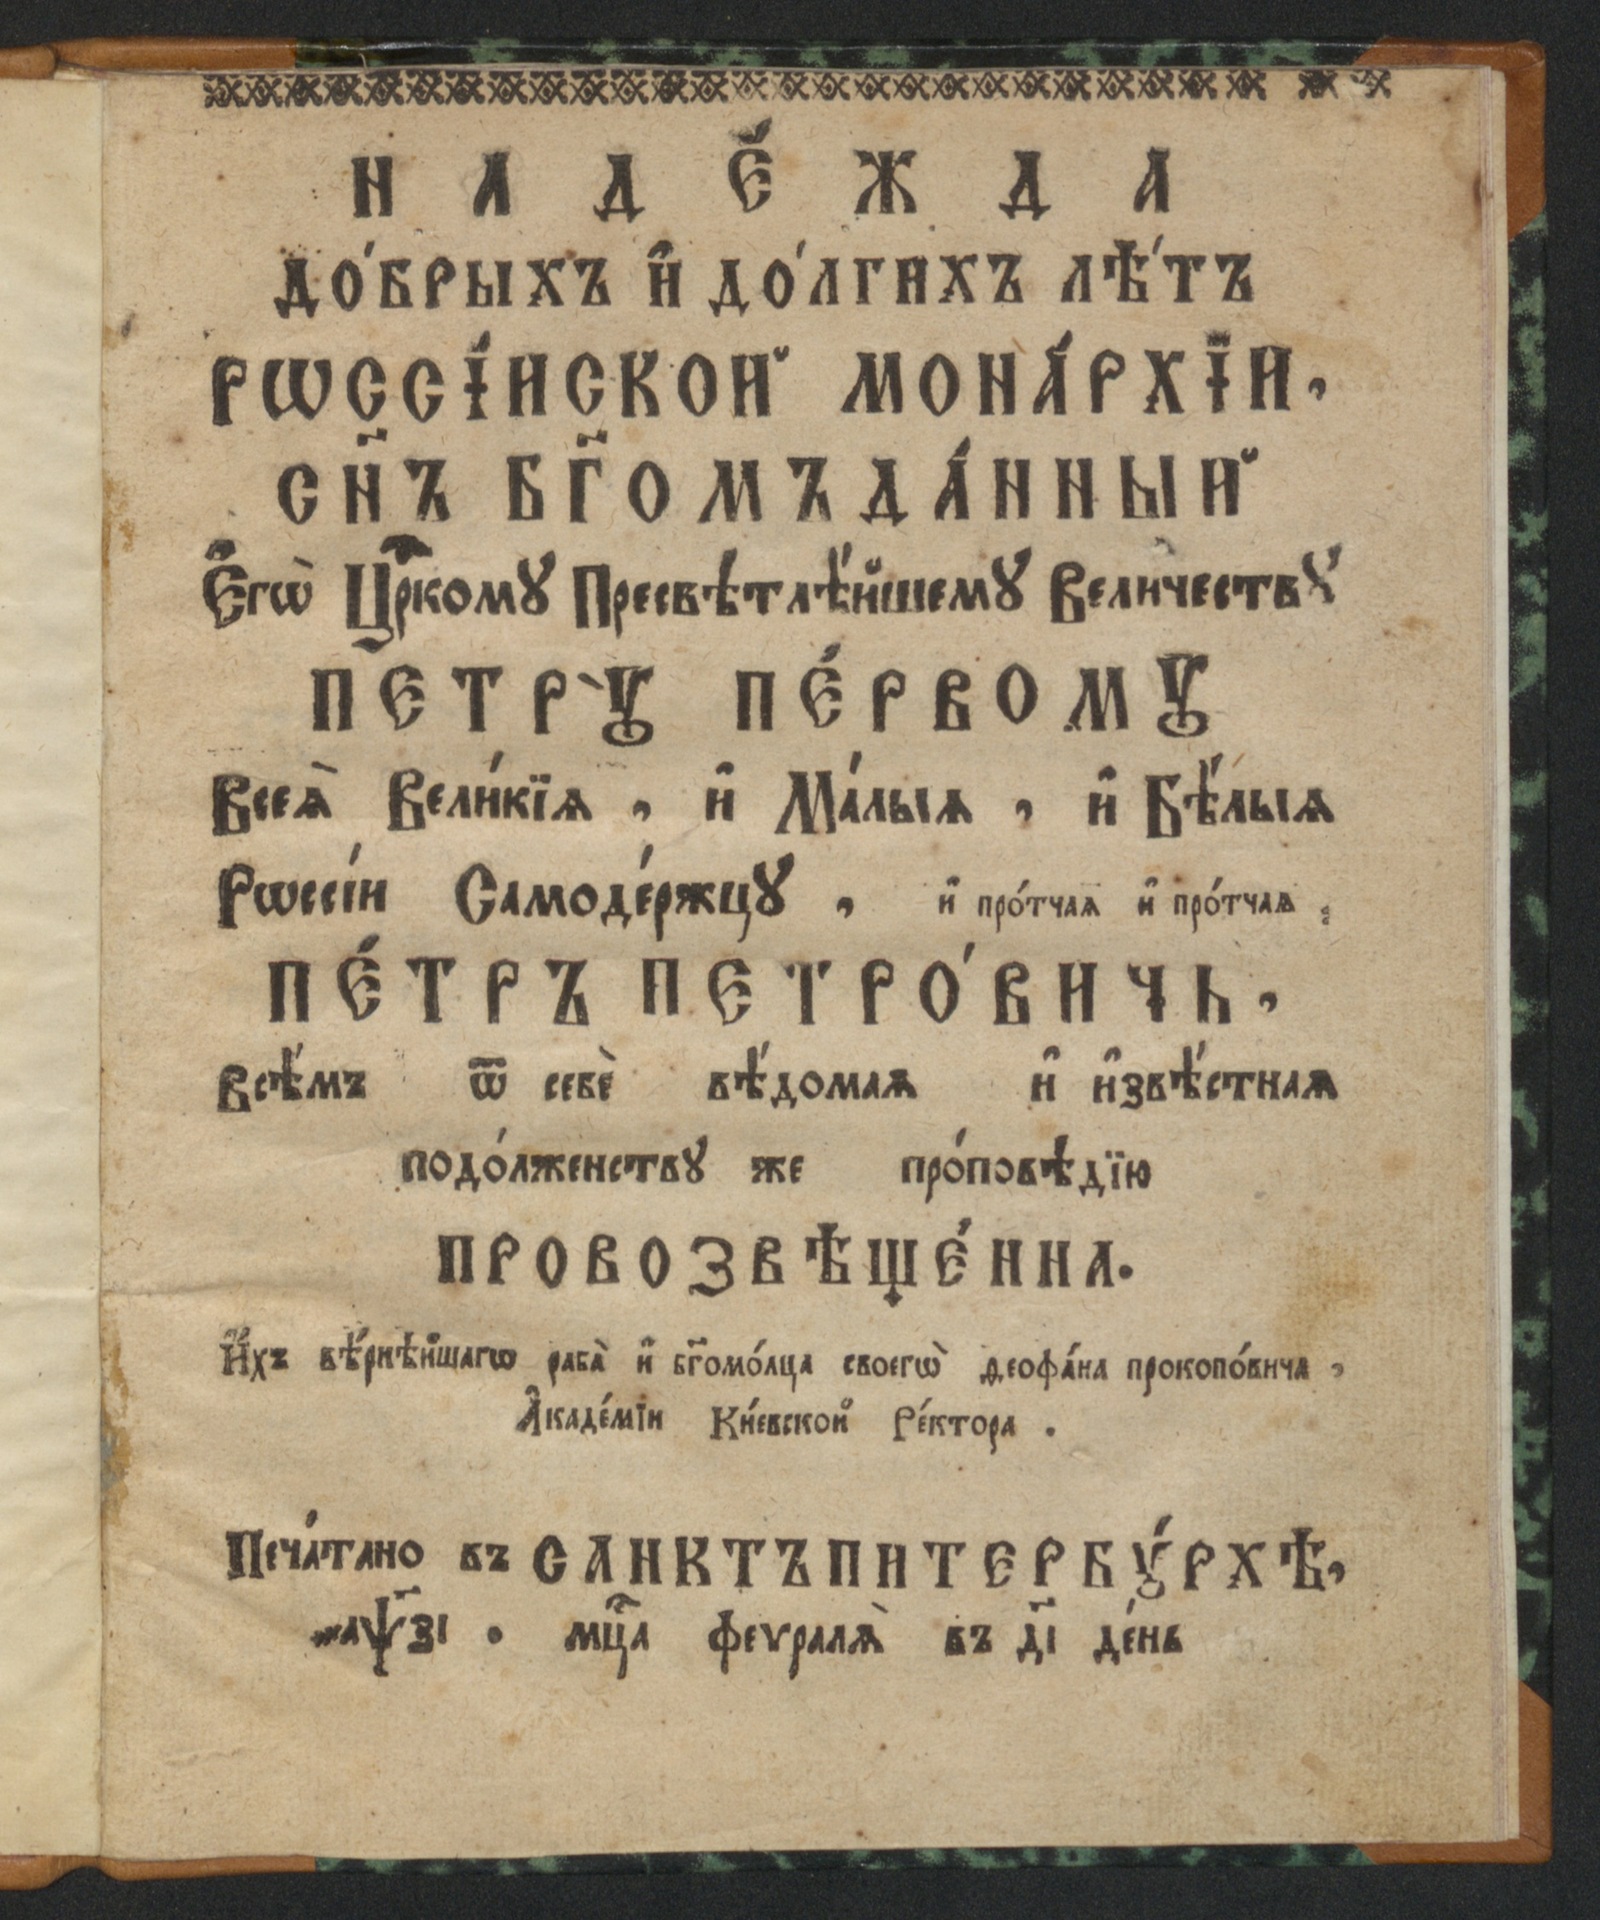 НАДЕ́ЖДА
ДО́БРЫХЪ И҆ ДО́ЛГИХЪ ЛѢ́ТЪ
РѠССІ́ИСКОЙ МОНА́РХЇИ,
СН҃Ъ БГ҃ОМЪДА́ННЫЙ
Є҆гѡ̀ Цр҃комꙋ Пресвѣтлѣ́йшемꙋ Величествꙋ̀
ПЕТРꙊ̀ ПЕ́РВОМꙊ
Всеѧ̀ Вели́кїѧ, и҆ Ма́лыѧ, и҆ Бѣ́лыѧ
Рѡссі́и Самоде́ржцꙋ, и҆ про́тчаѧ и҆ про́тчаѧ;
ПЕ́ТРЪ ПЕТРО́ВИЧЬ,
Всѣ́мъ ѿ себѐ вѣ́домаѧ и҆ и҆звѣ́стнаѧ
подо́лженствꙋ же про́повѣдїю
ПРОВОЗВѢЩЕ́ННА.
И҆́хъ вѣ́рнѣйшагѡ раба̀ и҆ бг҃омо́лца своегѡ̀ ѳеофа́на прокопо́вича,
А҆каде́мїи Ки́евской Ре́ктора.
Печа́тано въ САНКТЪПИТЕРБꙊ́РХѢ,
҂аѱ҃зі. мц҃а феѵралѧ̀ въ д҃і де́нь